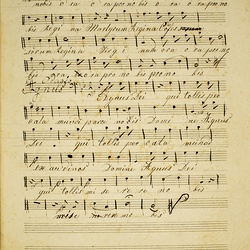 nobis o ra o ra pro no bis o ra o ra pro no
bis Regi na Martyrum Regina
Regina
ora o ra pro no bis pro no bis
Agnus Dei qui tollis pec
cata mundi parce no bis Domi ne Agnus
Dei qui tollis pec cata mundi
ex au di nos Domine Agnus Dei
qui tollis mi se re re no bis
mise re re no bis